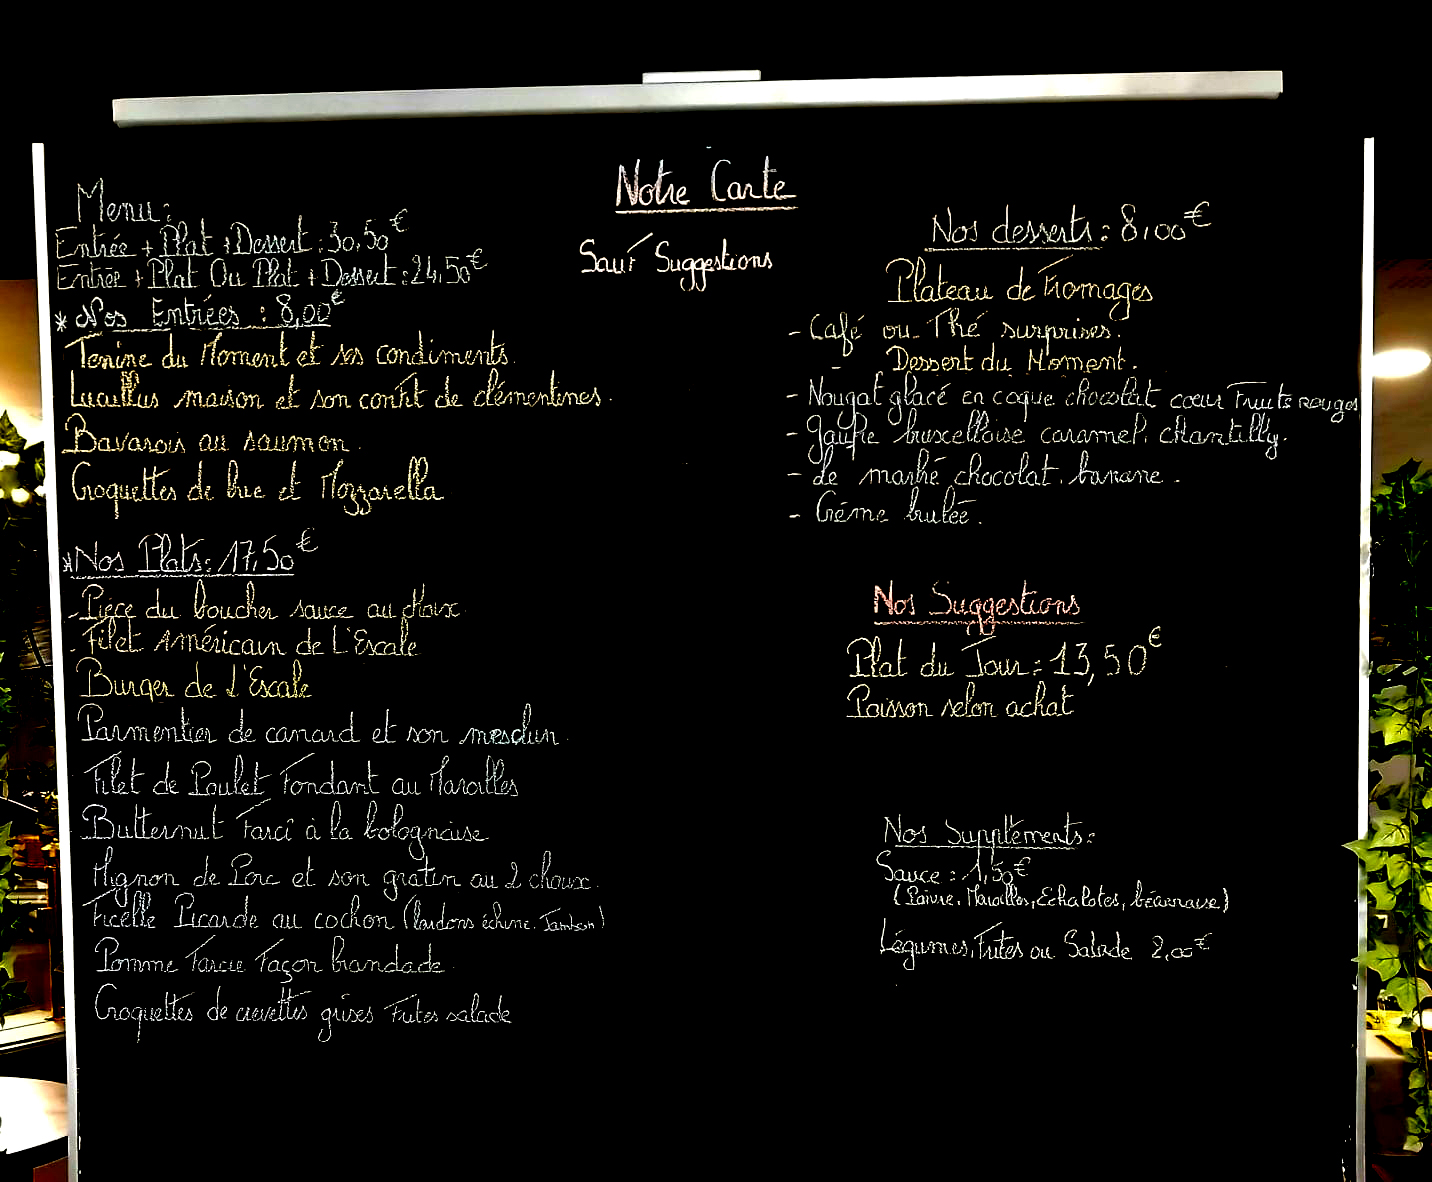 Notre Carte
Sauf Suggestions
Menu:
Entrée + Plat + Dessert : 30,50€
Entrée + Plat Ou Plat + Dessert : 24,50€
* Nos Entrées : 8,00€
Terrine du Moment et ses condiments.
Lucullus maison et son confit de clémentines.
Bavarois au saumon.
Croquettes de brie et Mozzarella
*Nos Plats: 17,50€
- Pièce du boucher sauce au choix
- Filet Américain de L'Escale
Burger de L'Escale
Parmentier de canard et son mesclun.
Filet de Poulet Fondant au Maroilles
Butternut Farci à la bolognaise
Mignon de Porc et son gratin au 2 choux.
Ficelle Picarde au cochon (lardons échine. Jambon)
Pomme Farcie Façon brandade.
Croquettes de crevettes grises Frites salade
Nos desserts : 8,00€
Plateau de Fromages
- Café ou Thé surprises.
- Dessert du Moment.
- Nougat glacé en coque chocolat coeur Fruits rouges
- Gaufre bruxelloise caramel. chantilly.
- Le marbré chocolat. banane.
- Crème brulée.
Nos Suggestions
Plat du Jour : 13,50€
Poisson selon achat
Nos Suppléments:
Sauce : 1,50€
(Poivre, Maroilles, Echalotes, béarnaise)
Légumes, Frites ou Salade 2,00€